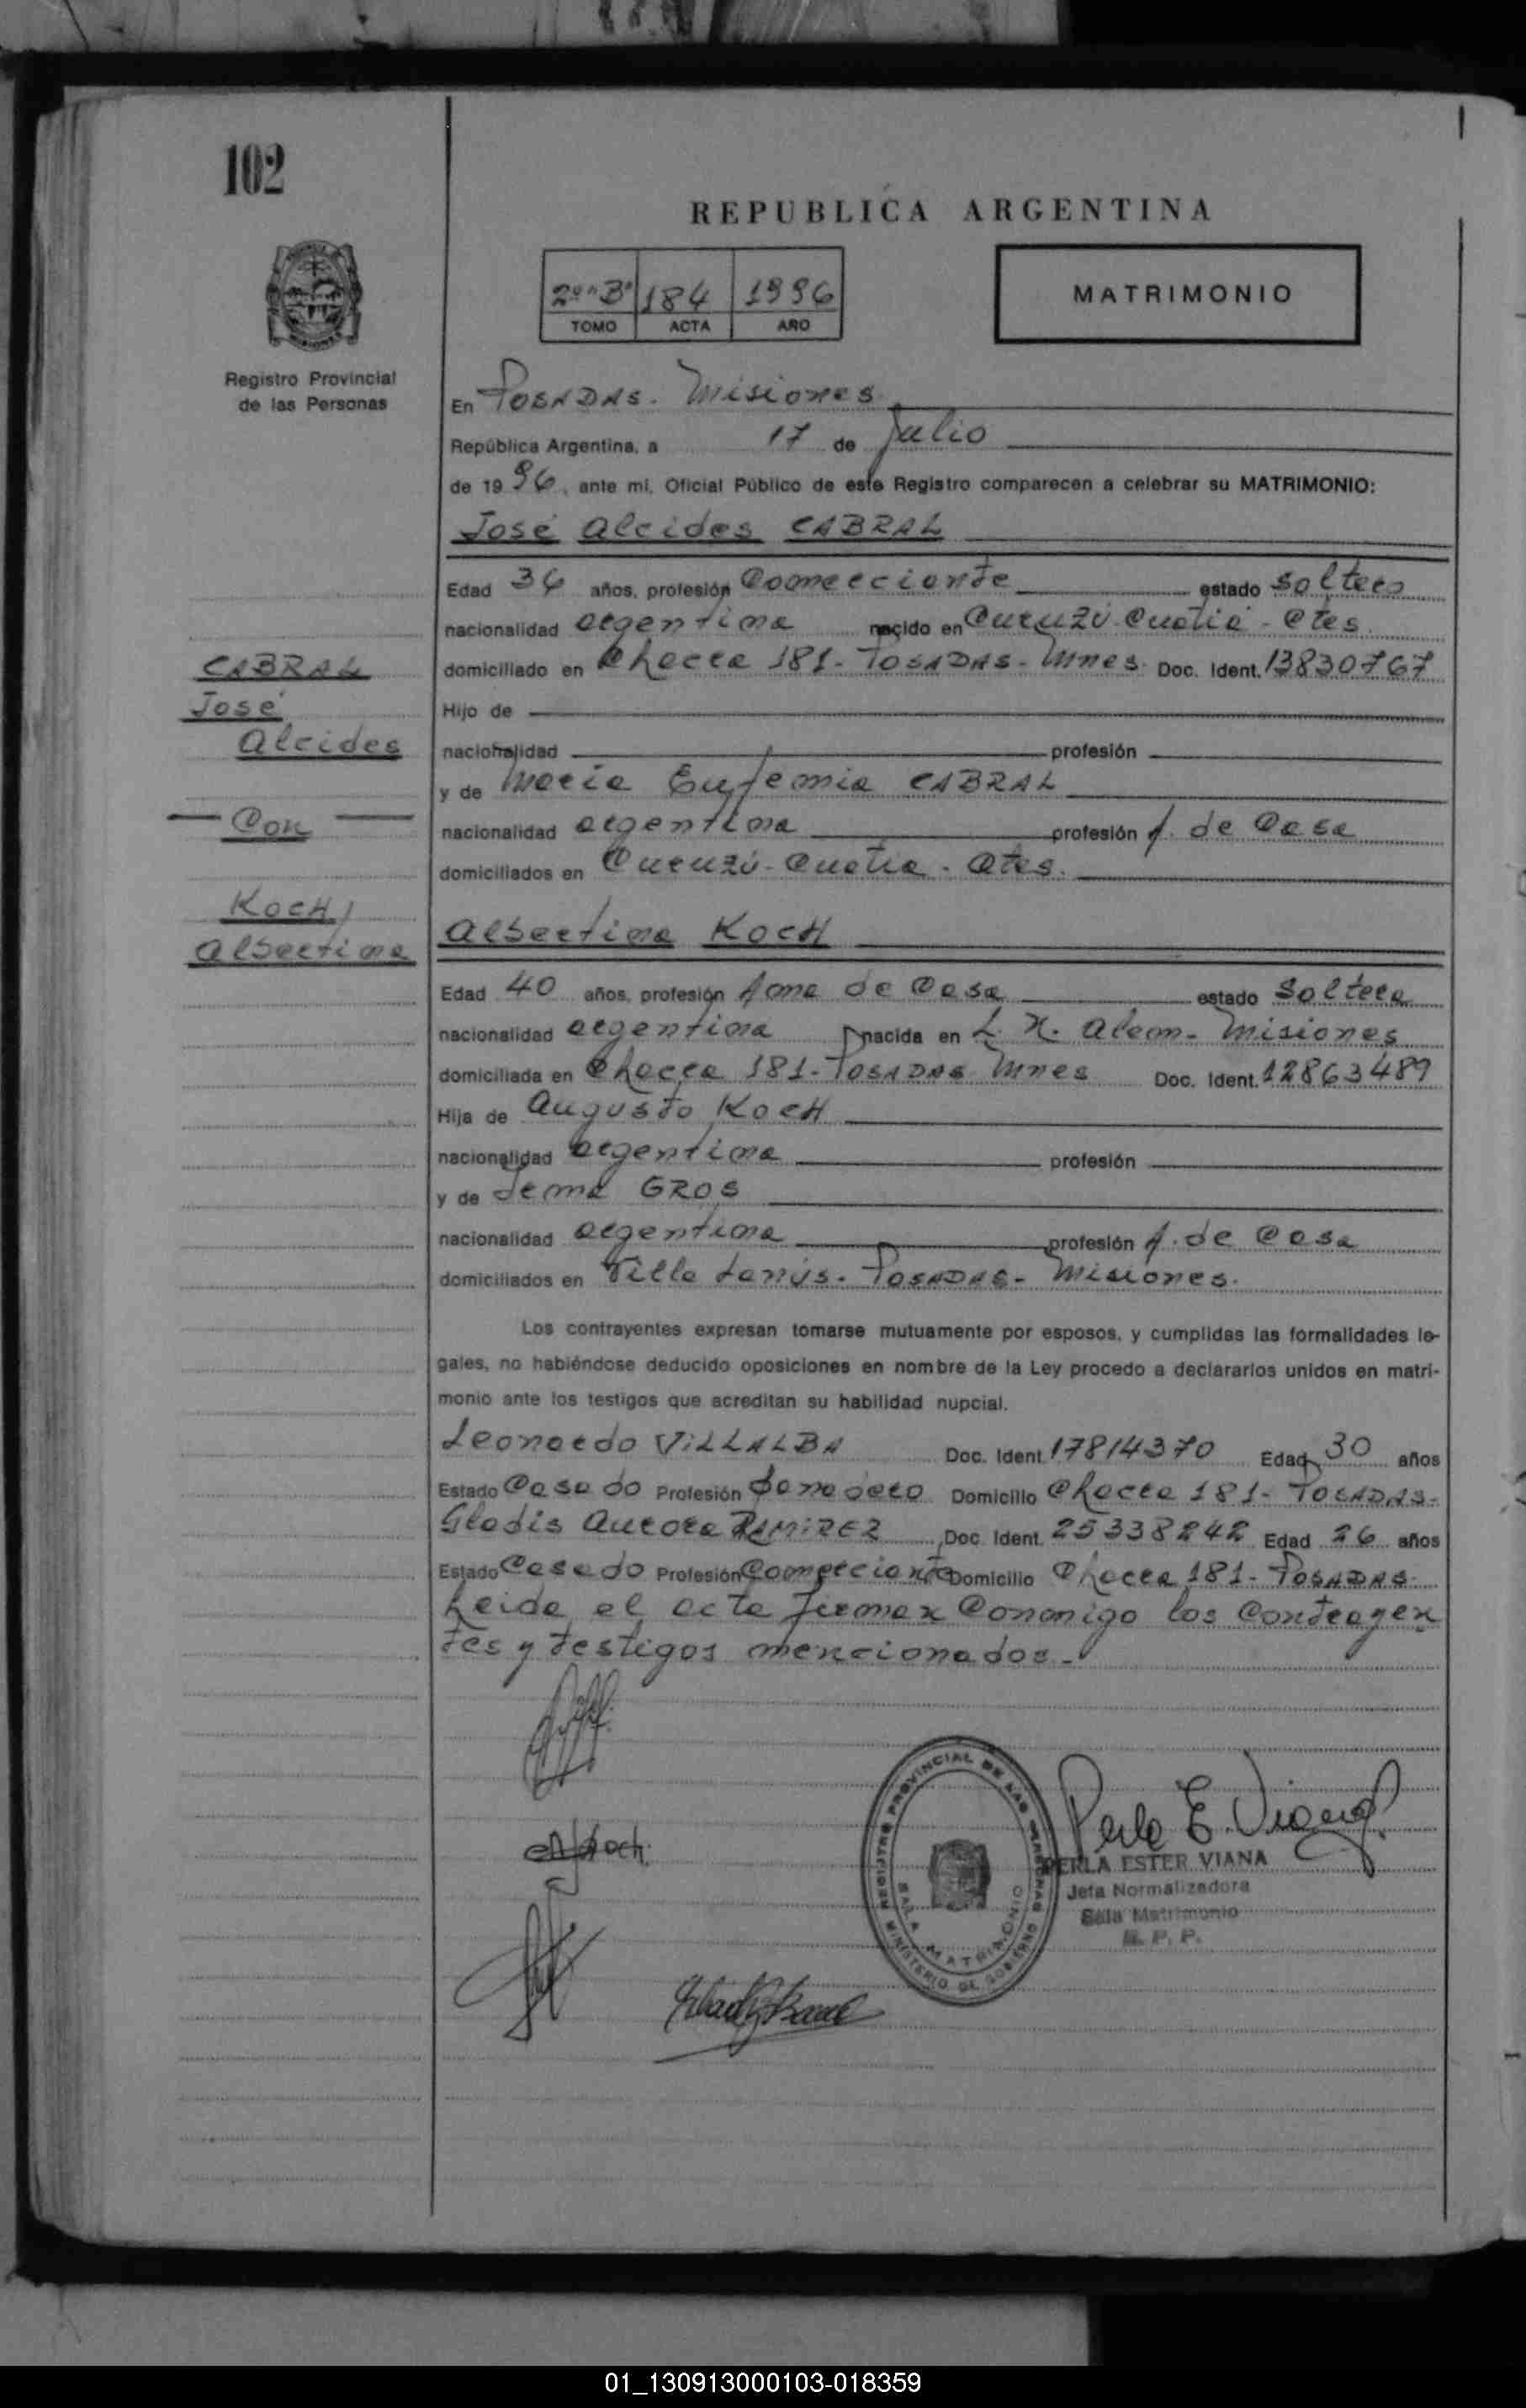 102
REPUBLICA ARGENTINA
2º "B" 184 1996
TOMO ACTA AÑO
MATRIMONIO
Registro Provincial
de las Personas
En POSADAS. Misiones
República Argentina, a 17 de Julio
de 19 96, ante mí, Oficial Público de este Registro comparecen a celebrar su MATRIMONIO:
José Alcides CABRAL
Edad 36 años, profesión Comerciante estado Soltero
nacionalidad argentina nacido en Curuzú Cuatiá - Ctes.
domiciliado en Chacra 181 - POSADAS - Mnes. Doc. Ident. 13830767
Hijo de
nacionalidad profesión
y de María Eufemia CABRAL
nacionalidad argentina profesión A. de Casa
domiciliados en Curuzú - Cuatia - Ctes.
CABRAL
José
Alcides
Con
KOCH,
Albertina
Albertina KOCH
Edad 40 años, profesión Ama de Casa estado Soltera
nacionalidad argentina nacida en L. N. Alem - Misiones
domiciliada en Chacra 181 - POSADAS Mnes Doc. Ident. 12863489
Hija de Augusto KOCH
nacionalidad argentina profesión
y de GROS
nacionalidad argentina profesión A. de Casa
domiciliados en Villa Lanús - POSADAS - Misiones.
Los contrayentes expresan tomarse mutuamente por esposos, y cumplidas las formalidades le-
gales, no habiéndose deducido oposiciones en nombre de la Ley procedo a declararlos unidos en matri-
monio ante los testigos que acreditan su habilidad nupcial.
Leonardo VILLALBA Doc. Ident. 17814370 Edad 30 años
Estado Casado Profesión Domicilio Chacra 181 - POSADAS-
Gladis Aurora RAMIREZ Doc. Ident. 25338242 Edad 26 años
Estado Casado Profesión Comerciante Domicilio Chacra 181 - POSADAS-
Leida el acta firman Conmigo los Contrayen
tes y testigos mencionados.-
Koch
REGISTRO PROVINCIAL DE LAS PERSONAS
SALA MATRIMONIO
MINISTERIO DE GOBIERNO
Perla E. Viana
PERLA ESTER VIANA
Jefa Normalizadora
Sala Matrimonio
R. P. P.
01_130913000103-018359